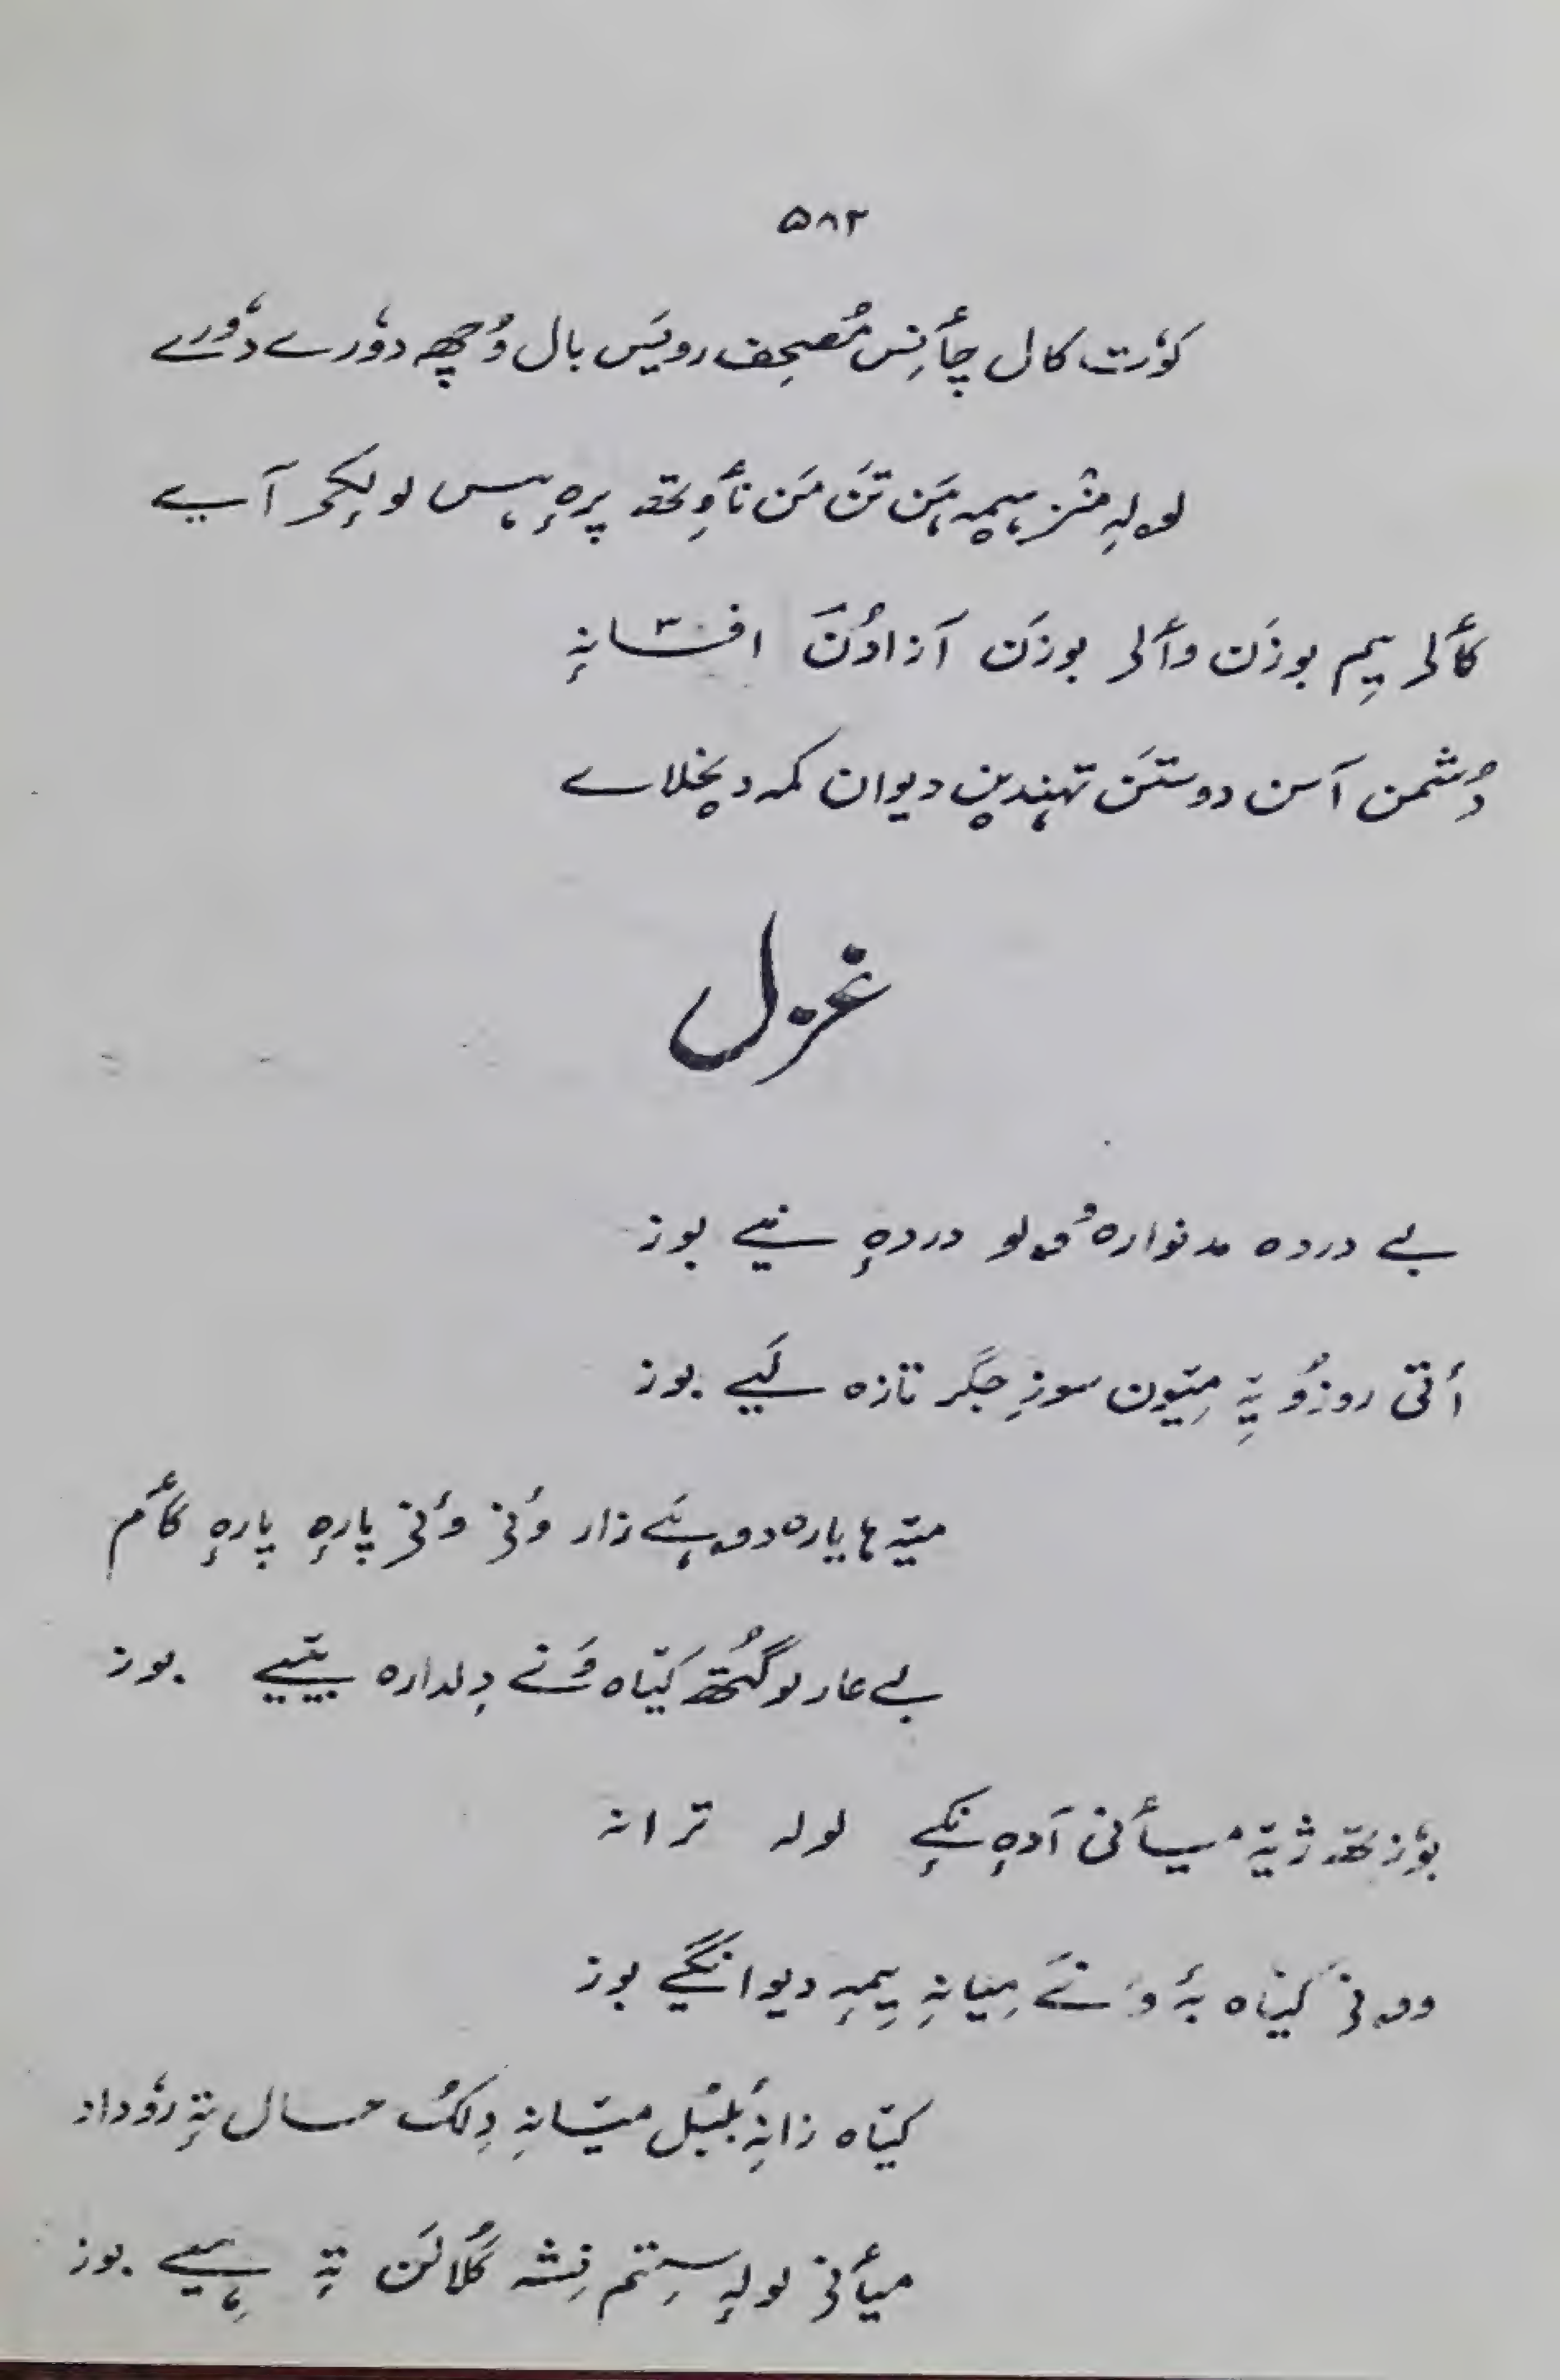 ۵۸۲
کوٚت کال چأنِس مُصحِف رویَس بال وُچھہٕ دوٗرے دوٗرے
لولہٕ منٛز ہیمہٕ ہَن تَن مَن نأوِتھ پرہٕ ہس لولِکۍ آیے
کألۍ یِم بوزَن وألۍ بوزَن آزادُنَ افسانہٕ
دُشمن آسن دوستَن تہِندین دیوان کمہ دیخلاے
غزل
بے دردہ مدنوارہ مۄلو دردہٕ نیے بوز
أتی روزُو یہِ میٛون سوزِ جگر تازہ لَیے بوز
میٛہ ہا یارہ دوہَے زار وٕنۍ وٕنۍ پارہٕ پارہٕ گأم
بے عار لوگُتھ کیٛاہ وَنے دِلدارہ بییے بوز
بوٗزتھ ژیہٕ میأنۍ آدہٕ نِکے لولہ ترانہ
وۄنۍ کیٛاہ بہٕ وَنَے میانہِ یِمہِ دیوانگیے بوز
کیٛاہ زانہِ بُلبُل میٛانہِ دِلُک حال تہٕ روٗداد
میأنۍ لولہٕ سِتم نِشہ گُلالَن تہٕ ہیے بوز